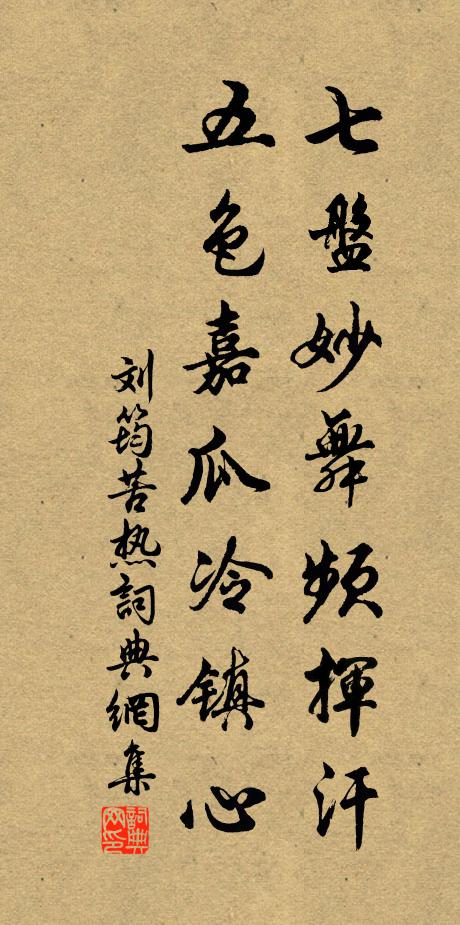 七盤妙舞頻揮汗
五色嘉瓜冷鎮心
刘筠苦热詞典網集
詞典網印